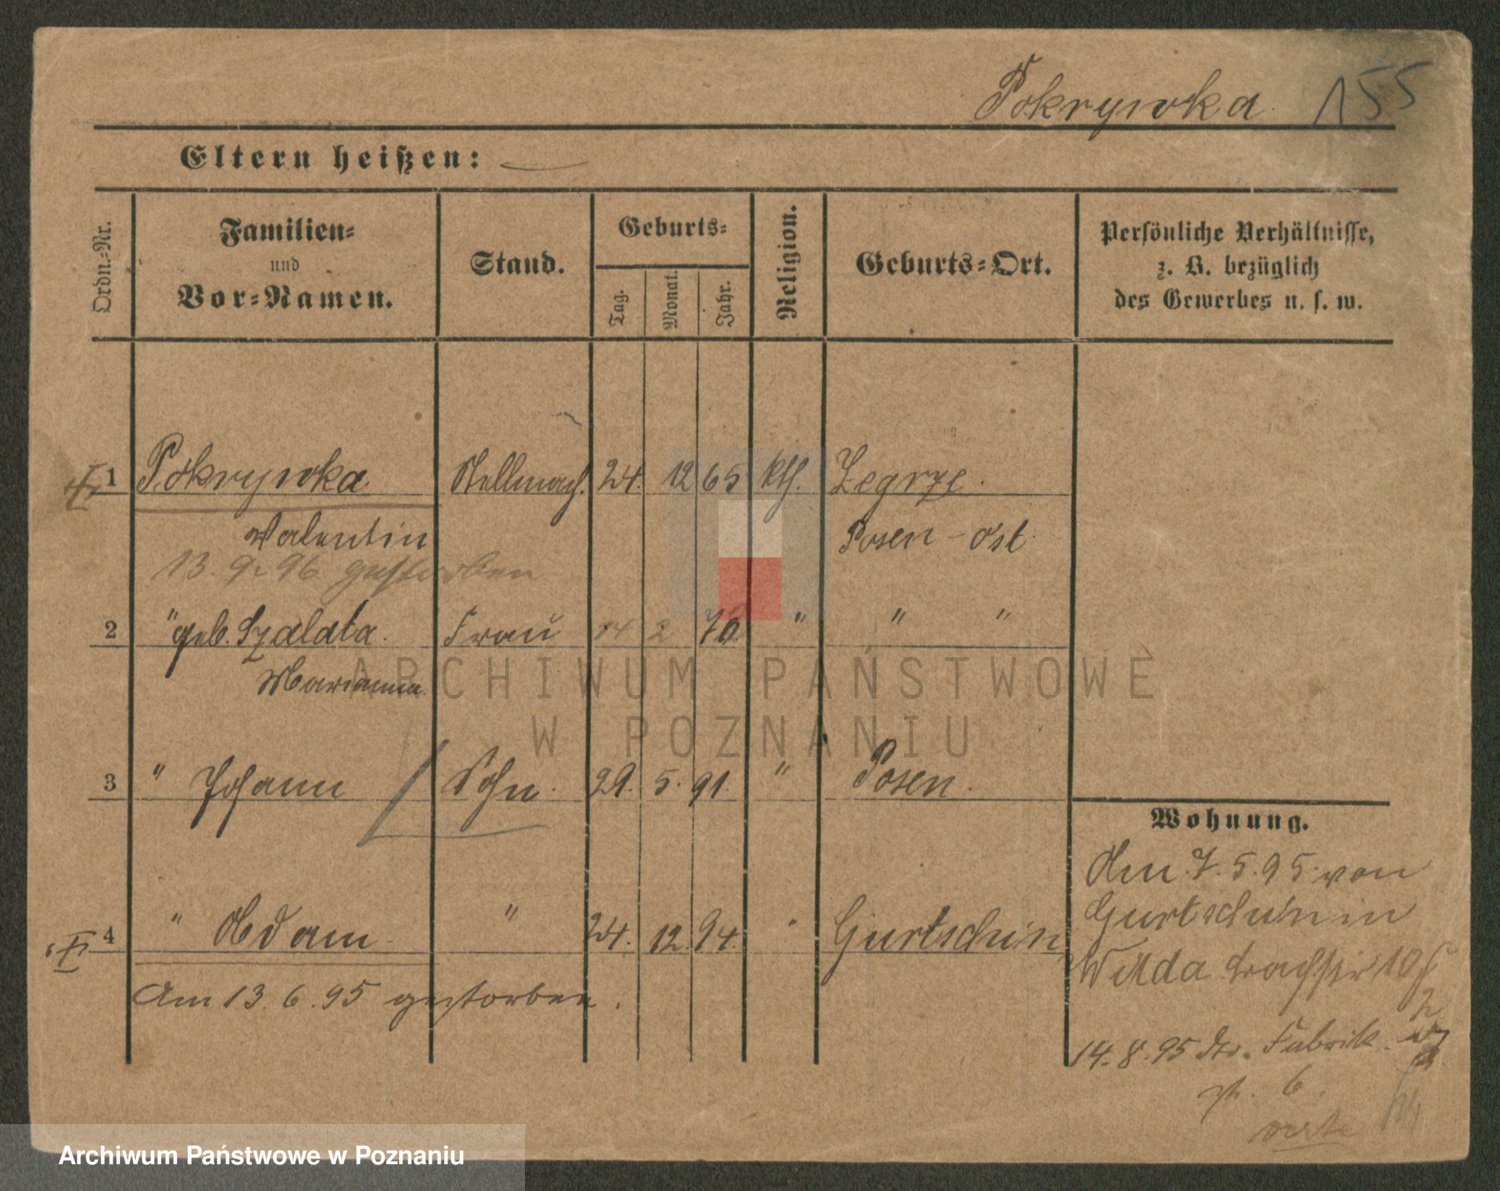 Pokrywka 155
Eltern heißen: —
Ordn.-Nr.
Familien-
und
Vor-Namen.
Stand.
Geburts-
Tag.
Monat.
Jahr.
Religion.
Geburts-Ort.
Persönliche Verhältnisse,
z. B. bezüglich
des Gewerbes u. s. w.
1 Pokrywka Stellmach. 24. 12 65 kth. Zegrze.
Valentin Posen - Ost.
13. 9. 96 gestorben
2 " geb. Szalata. Frau 14 2 70 " " "
Marianna
ARCHIWUM PAŃSTWOWE
W POZNANIU
3 " Johann Sohn. 29. 5. 91. " Posen.
4 " Adam " 24. 12. 94. " Gurtschin
Am 13. 6. 95 gestorben.
Wohnung.
Am 7. 5. 95 von
Gurtschin in
Wilda 10
14. 8. 95 Fabrik
6.
Archiwum Państwowe w Poznaniu